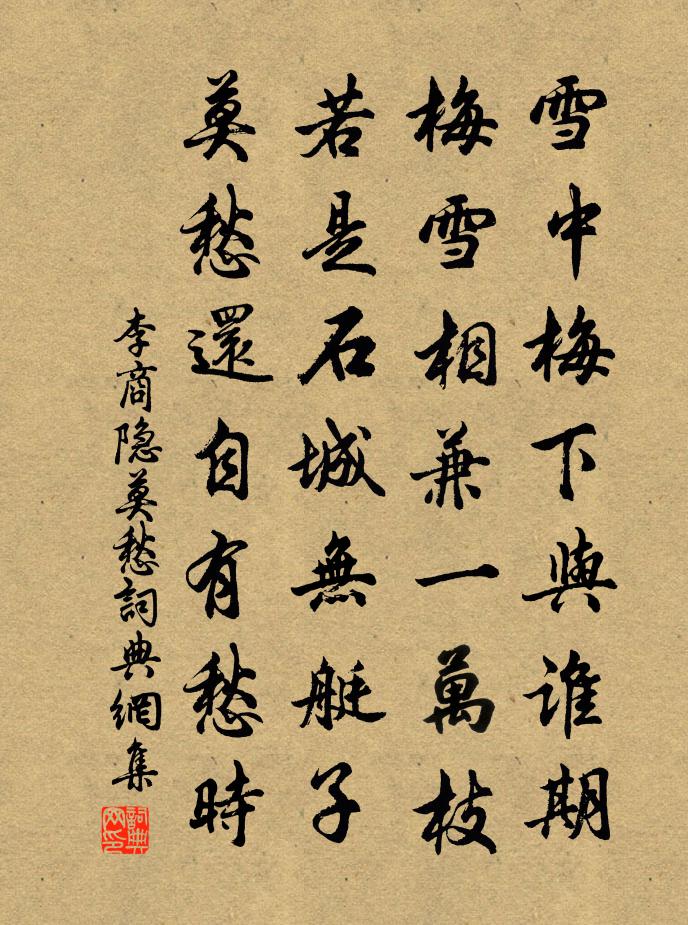 雪中梅下與誰期
梅雪相兼一萬枝
若是石城無艇子
莫愁還自有愁時
李商隐莫愁詞典網集
詞典网印